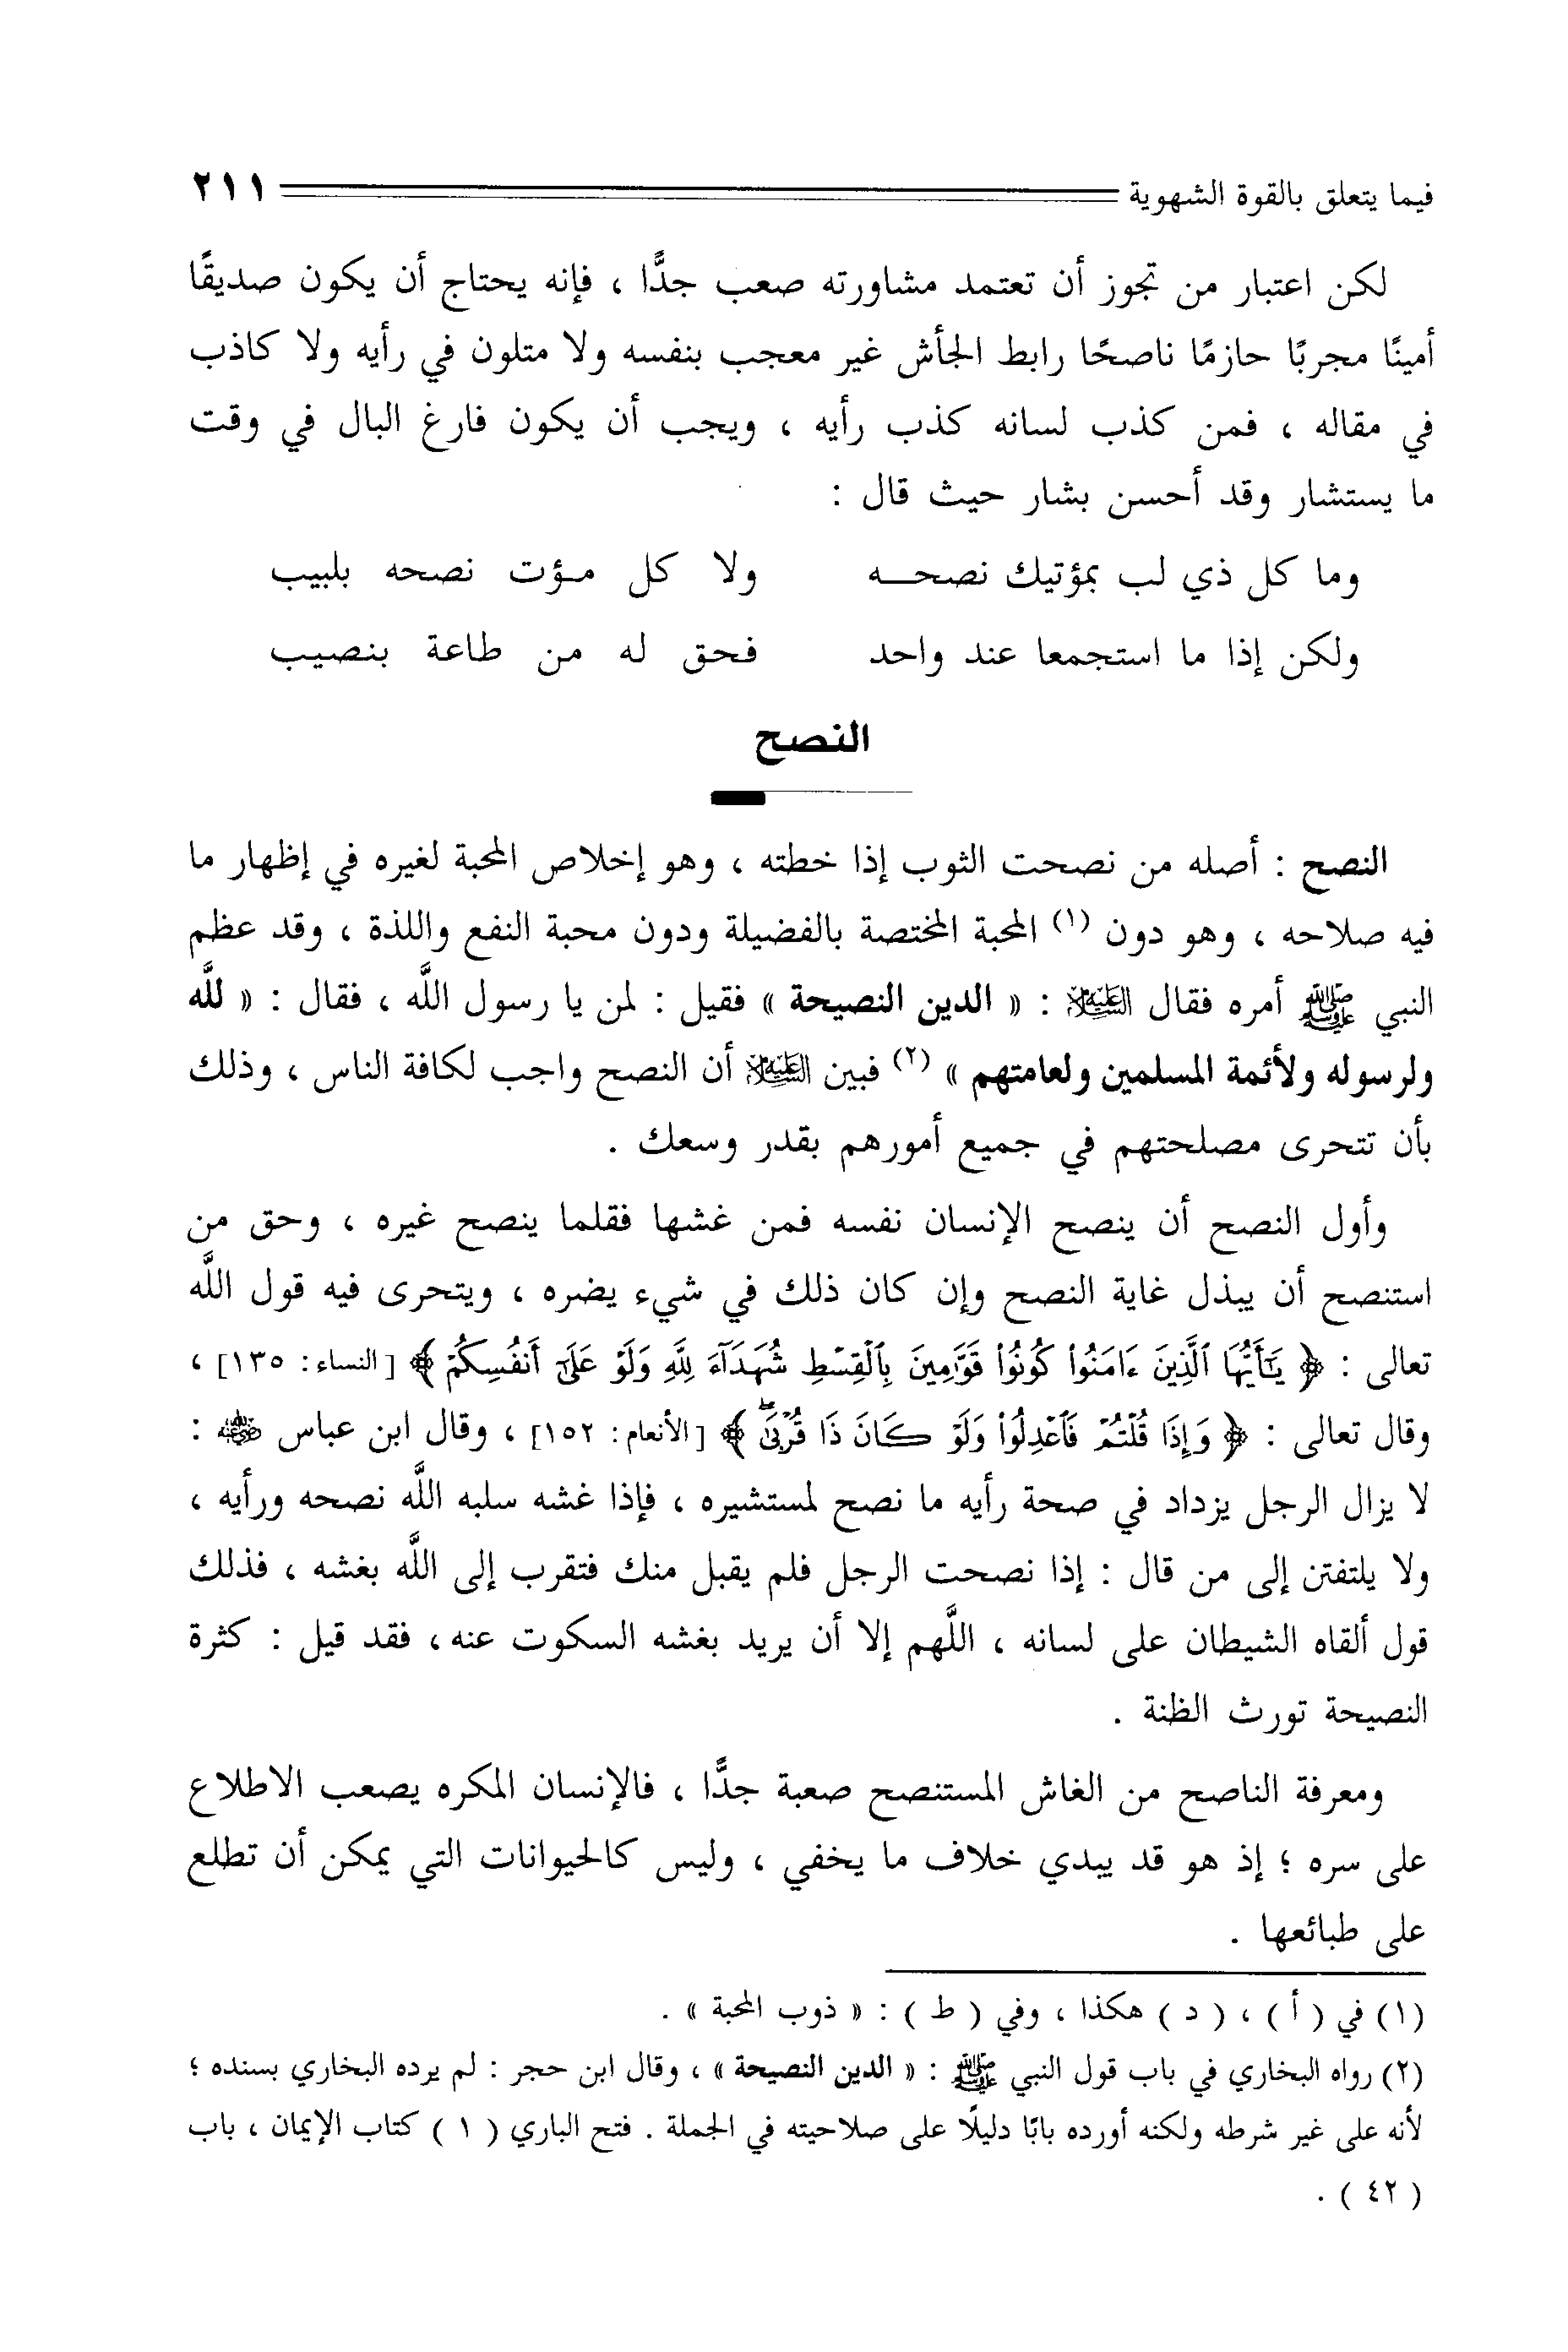 فيما يتعلق بالقوة الشهوية ٢١١
لكن اعتبار من تجوز أن تعتمد مشاورته صعب جدًّا ، فإنه يحتاج أن يكون صديقًا
أمينًا مجربًا حازمًا ناصحًا رابط الجأش غير معجب بنفسه ولا متلون في رأيه ولا كاذب
في مقاله ، فمن كذب لسانه كذب رأيه ، ويجب أن يكون فارغ البال في وقت
ما يستشار وقد أحسن بشار حيث قال :
وما كل ذي لب بمؤتيك نصحـــه ولا كل مـؤت نصحه بلبيب
ولكن إذا ما استجمعا عند واحد فحق له من طاعة بنصيب
النصح
النصح : أصله من نصحت الثوب إذا خطته ، وهو إخلاص المحبة لغيره في إظهار ما
فيه صلاحه ، وهو دون (١) المحبة المختصة بالفضيلة ودون محبة النفع واللذة ، وقد عظم
النبي ﷺ أمره فقال عليه السلام : « الدين النصيحة » فقيل : لمن يا رسول اللَّه ، فقال : « للَّه
ولرسوله ولأئمة المسلمين ولعامتهم » (٢) فبين عليه السلام أن النصح واجب لكافة الناس ، وذلك
بأن تتحرى مصلحتهم في جميع أمورهم بقدر وسعك .
وأول النصح أن ينصح الإنسان نفسه فمن غشها فقلما ينصح غيره ، وحق من
استنصح أن يبذل غاية النصح وإن كان ذلك في شيء يضره ، ويتحرى فيه قول اللَّه
تعالى : ﴿ يَـٰٓأَيُّهَا ٱلَّذِينَ ءَامَنُوا۟ كُونُوا۟ قَوَّٰمِينَ بِٱلْقِسْطِ شُهَدَآءَ لِلَّهِ وَلَوْ عَلَىٰٓ أَنفُسِكُمْ ﴾ [ النساء: ١٣٥] ،
وقال تعالى : ﴿ وَإِذَا قُلْتُمْ فَٱعْدِلُوا۟ وَلَوْ كَانَ ذَا قُرْبَىٰۖ ﴾ [ الأنعام: ١٥٢] ، وقال ابن عباس رضي الله عنه :
لا يزال الرجل يزداد في صحة رأيه ما نصح لمستشيره ، فإذا غشه سلبه اللَّه نصحه ورأيه ،
ولا يلتفتن إلى من قال : إذا نصحت الرجل فلم يقبل منك فتقرب إلى اللَّه بغشه ، فذلك
قول ألقاه الشيطان على لسانه ، اللَّهم إلا أن يريد بغشه السكوت عنه، فقد قيل : كثرة
النصيحة تورث الظنة .
ومعرفة الناصح من الغاش المستنصح صعبة جدًّا ، فالإنسان المكره يصعب الاطلاع
على سره ؛ إذ هو قد يبدي خلاف ما يخفي ، وليس كالحيوانات التي يمكن أن تطلع
على طبائعها .
(١) في ( أ ) ، ( د ) هكذا ، وفي ( ط ) : « ذوب المحبة » .
(٢) رواه البخاري في باب قول النبي ﷺ : « الدين النصيحة » ، وقال ابن حجر : لم يرده البخاري بسنده ؛
لأنه على غير شرطه ولكنه أورده بابًا دليلًا على صلاحيته في الجملة . فتح الباري ( ١ ) كتاب الإيمان ، باب
( ٤٢ ) .